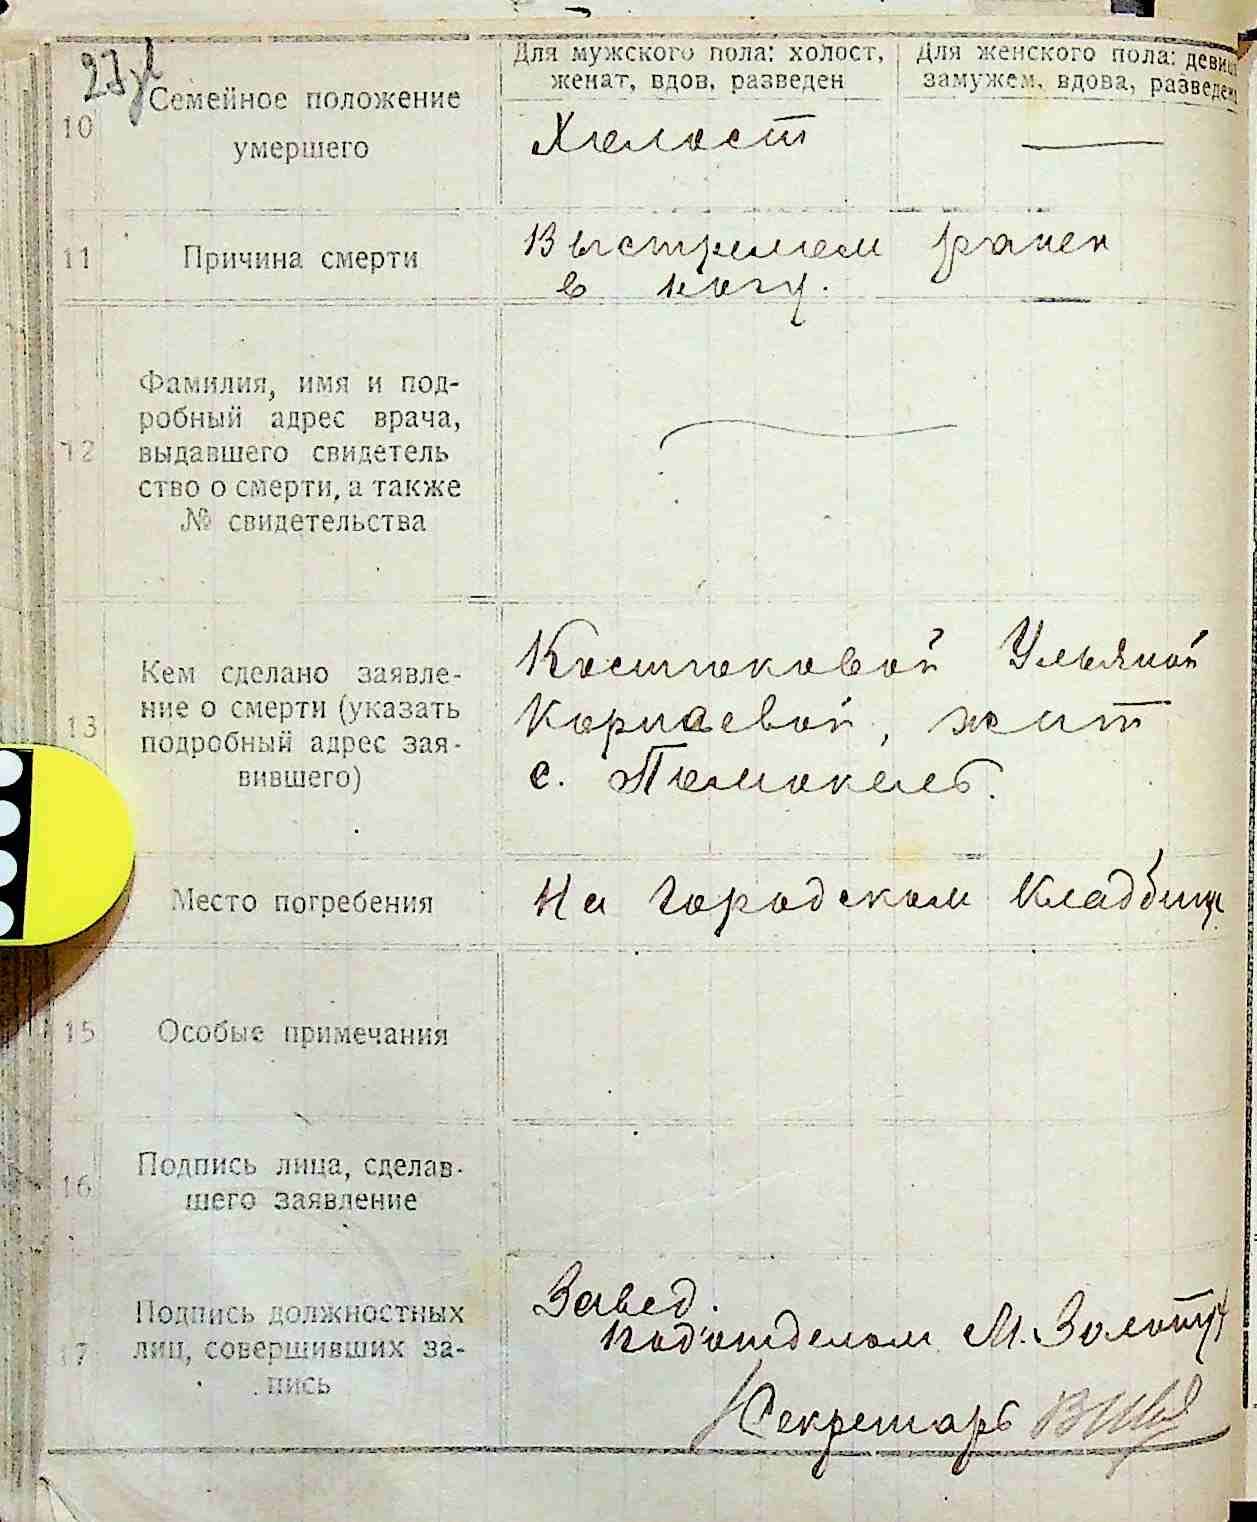 Для мужского пола: холост,
женат, вдов, разведен
Для женского пола: девица
замужем, вдова, разведена
10
Семейное положение
умершего
Холост
11
Причина смерти
Выстрелом ранен
в ногу.
12
Фамилия, имя и под-
робный адрес врача,
выдавшего свидетель
ство о смерти, а также
№ свидетельства
13
Кем сделано заявле-
ние о смерти (указать
подробный адрес зая-
вившего)
Костюковой Ульяной
Корнеевой, жит
с.
Место погребения
На городском кладбище
15
Особые примечания
16
Подпись лица, сделав-
шего заявление
17
Подпись должностных
лиц, совершивших за-
пись
Завед.
подотделом М. Золотух
Секретарь